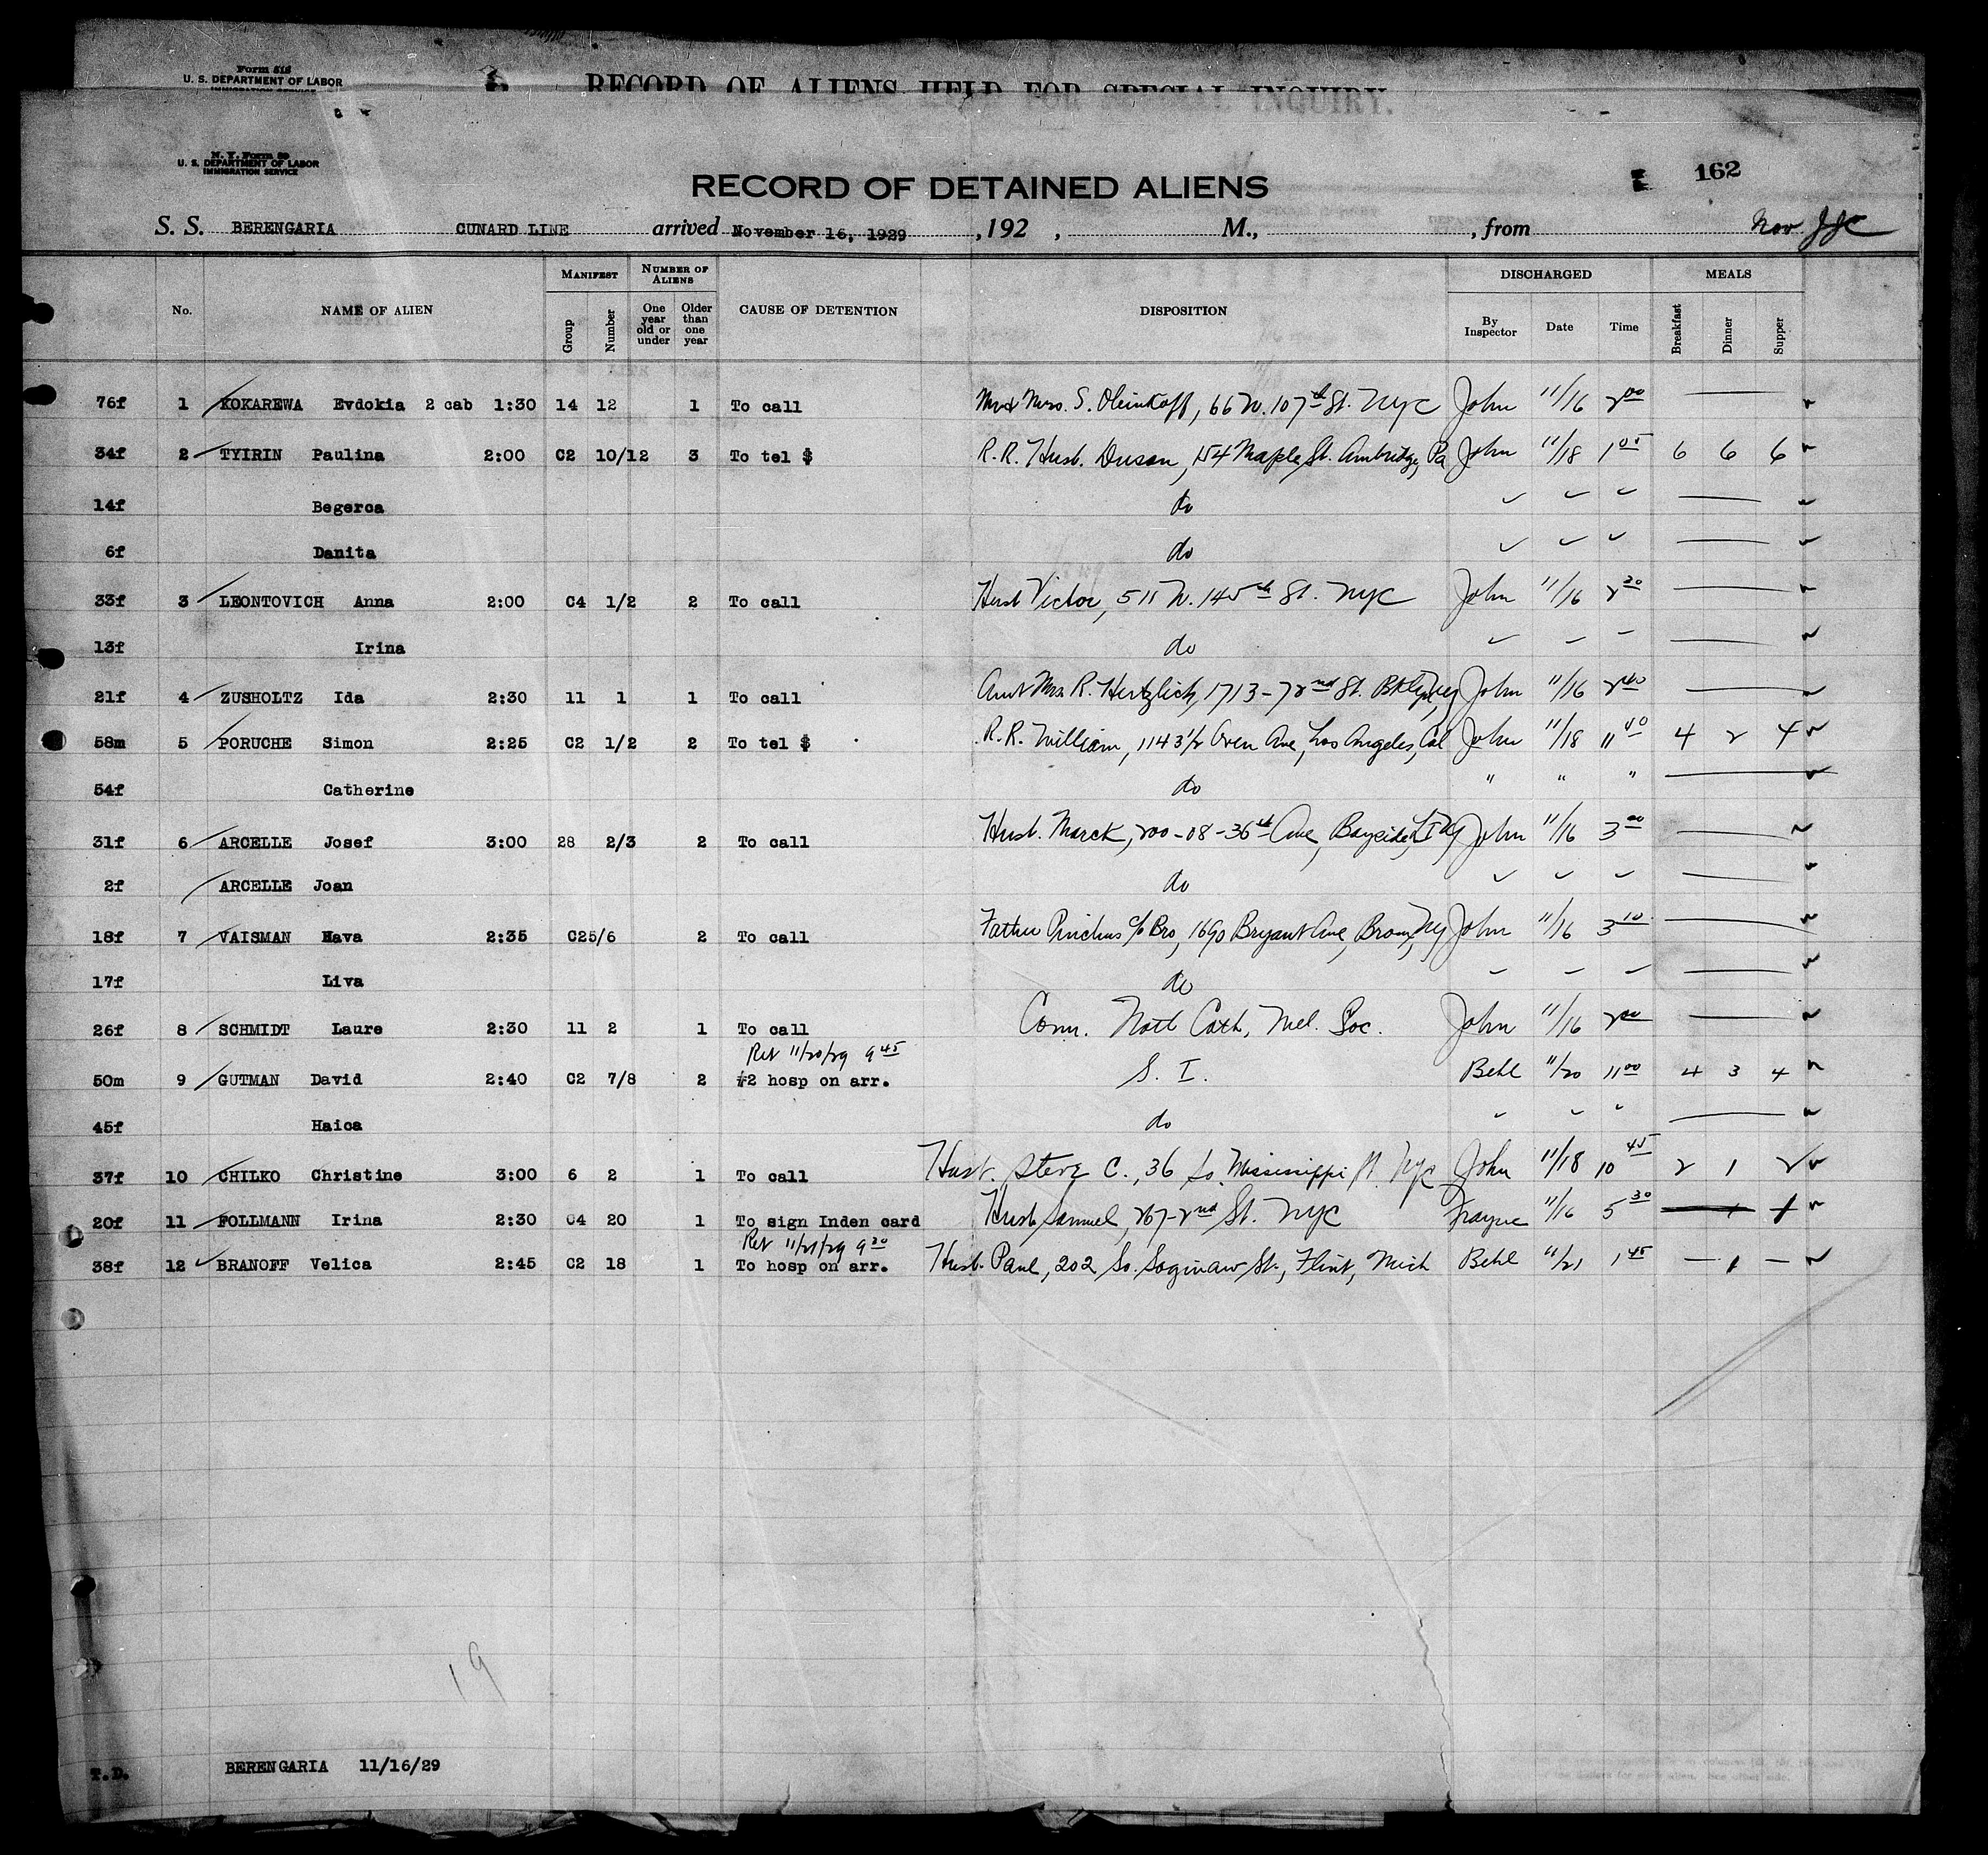 Form 518
U. S. DEPARTMENT OF LABOR
RECORD OF ALIENS HELD FOR SPECIAL INQUIRY.
N. Y. Form 59
U. S. DEPARTMENT OF LABOR
IMMIGRATION SERVICE
162
RECORD OF DETAINED ALIENS
S. S. BERENGARIA CUNARD LINE arrived November 16, 1929 , 192 , M., , from Nov
No. NAME OF ALIEN MANIFEST Group Number NUMBER OF ALIENS One year old or under Older than one year CAUSE OF DETENTION DISPOSITION DISCHARGED By Inspector Date Time MEALS Breakfast Dinner Supper
76f 1 KOKAREWA Evdokia 2 cab 1:30 14 12 1 To call Mr & Mrs. S. Oleinkoff, 66 W. 107th St. NYC John 11/16 2 00
34f 2 TYIRIN Paulina 2:00 C2 10/12 3 To tel $ R.R. Husb. Dusan, 154 Maple St. Ambridge, Pa John 11/18 1 05 6 6 6
14f Begerca do
6f Danita do
33f 3 LEONTOVICH Anna 2:00 C4 1/2 2 To call Husb Victor, 511 W. 145th St. NYC John 11/16 2 30
13f Irina do
21f 4 ZUSHOLTZ Ida 2:30 11 1 1 To call Aunt Mrs R. Hertzlich, 1713-72nd St. Bklyn, NY John 11/16 2 40
58m 5 PORUCHE Simon 2:25 C2 1/2 2 To tel $ R.R. William, 1143 1/2 Oven Ave, Los Angeles, Cal John 11/18 11 40 4 2 4
54f Catherine do " " "
31f 6 ARCELLE Josef 3:00 28 2/3 2 To call Husb. Marck, 200-08-36th Ave, Bayside, L I NY John 11/16 3 00
2f ARCELLE Joan do
18f 7 VAISMAN Hava 2:35 C2 5/6 2 To call Father Pinchus c/o Bro, 1690 Bryant Ave, Bronx, NY John 11/16 3 10
17f Liva do
26f 8 SCHMIDT Laure 2:30 11 2 1 To call Comm. Natl Cath. Wel. Soc. John 11/16 2 00
Ret 11/20/29 9 45
50m 9 GUTMAN David 2:40 C2 7/8 2 #2 hosp on arr. S. I. Behl 11/20 11 00 4 3 4
45f Haica do
37f 10 CHILKO Christine 3:00 6 2 1 To call Husb. Steve C., 36 So. Mississippi NYC John 11/18 10 45 2 1 2
20f 11 FOLLMANN Irina 2:30 C4 20 1 To sign Inden card Husb, Samuel, 267-2nd St. NYC Frayne 11/16 5 30 1
Ret 11/21/29 9 30
38f 12 BRANOFF Velica 2:45 C2 18 1 To hosp on arr. Husb. Paul, 202 So. Saginaw St., Flint, Mich Behl 11/21 1 45 — 1 —
19
T.D. BERENGARIA 11/16/29